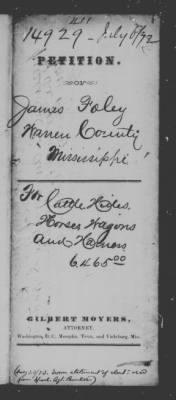 14929 - July 8/72
PETITION.
OF
James Foley
Warren County
Mississippi
For Cattle Hides.
Horses Wagons
and Harness
6.465.00
GILBERT MOYERS,
ATTORNEY.
Washington, D. C., Memphis, Tenn., and Vicksburg, Miss.